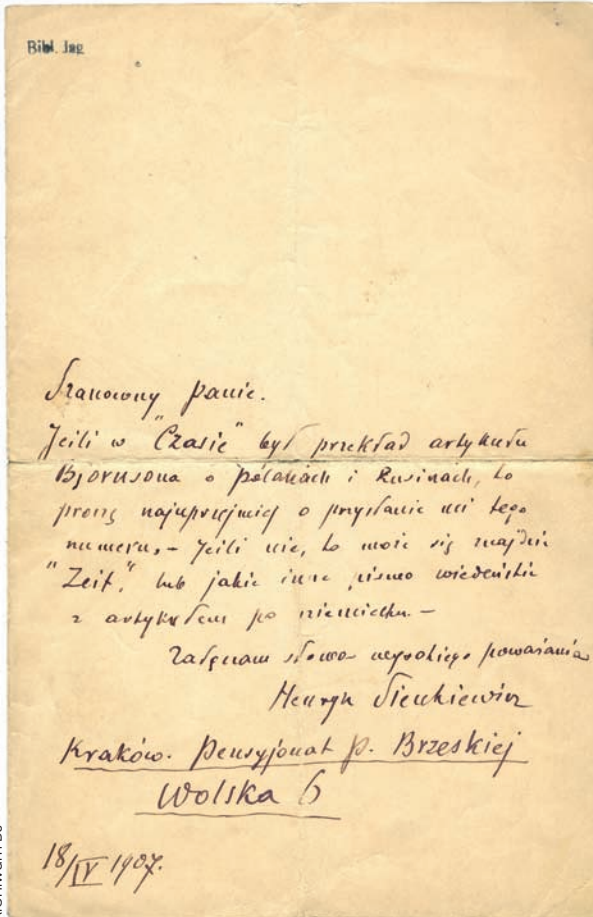 Bibl. Jag
Szanowny Panie.
Jeili w "Czasie" był przekład artykułu
Bjornsona o Polakach i Rusinach, to
proszę najuprzejmiej o przysłanie mi tego
numeru. – Jeili nie, to może się znajdzie
"Zeit", lub jakie inne pismo wiedeńskie
z artykułem po niemiecku. –
Załączam słowa wysokiego poważania
Henryk Sienkiewicz
Kraków. Pensyjonat p. Brzeskiej
Wolska 6
18/IV 1907.